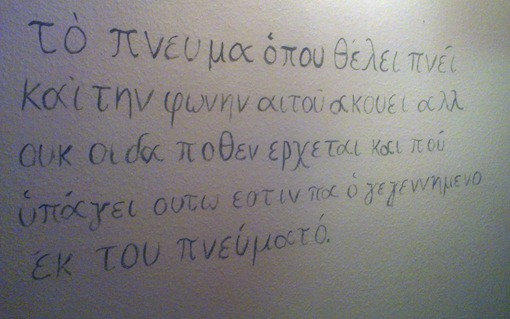 τὸ πνευμα ὁπου θέλει πνεῖ
καὶ την φωνην αιτοῦ ακουει αλλ
ουκ οιδα ποθεν ερχεται και ποῦ
ὑπάγει ουτω εστιν πα ὁ γεγεννημενο
ἐκ του πνεύματό.